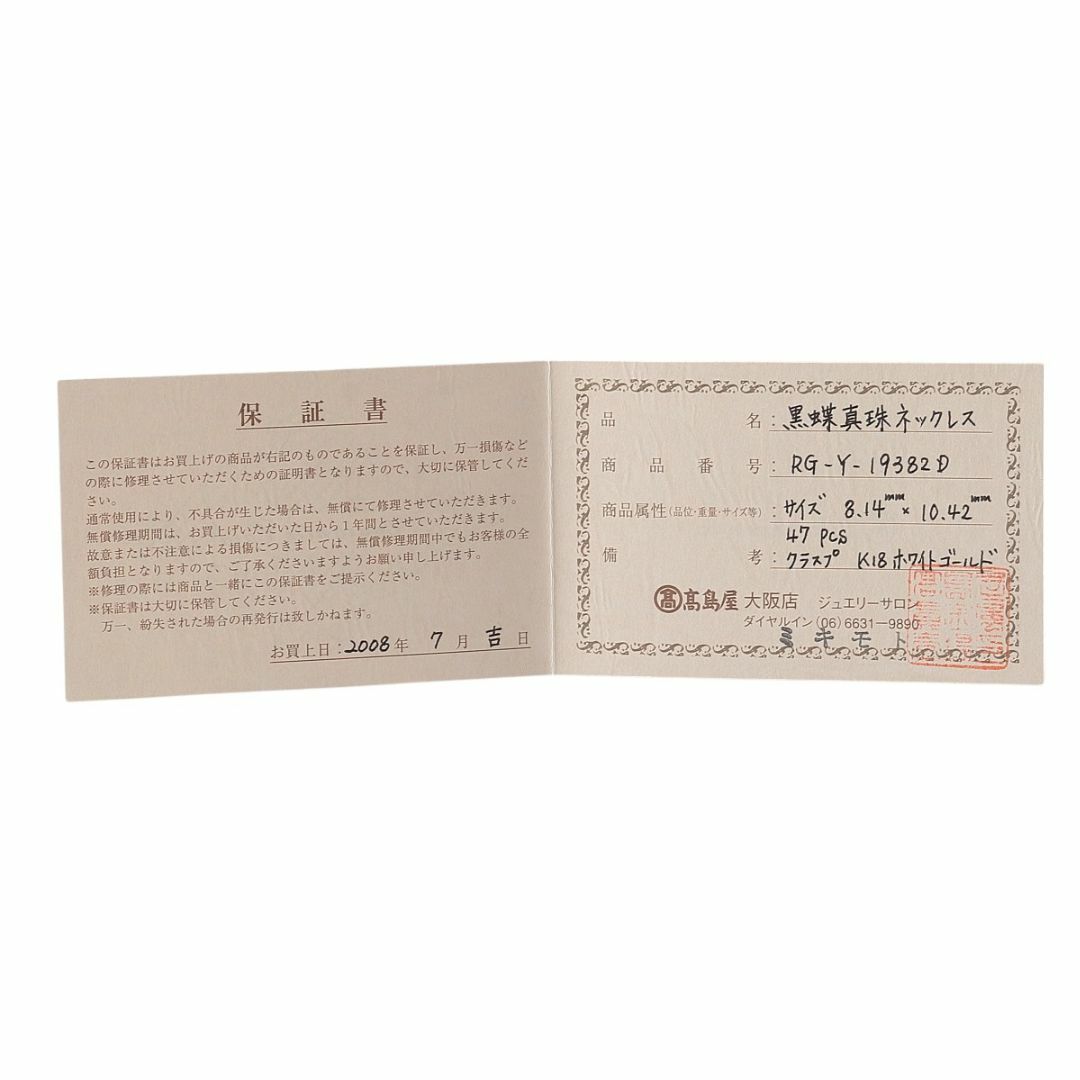 保証書
この保証書はお買上げの商品が右記のものであることを保証し、万一損傷など
の際に修理させていただくための証明書となりますので、大切に保管してくだ
さい。
通常使用により、不具合が生じた場合は、無償にて修理させていただきます。
無償修理期間は、お買上げいただいた日から1年間とさせていただきます。
故意または不注意による損傷につきましては、無償修理期間中でもお客様の全
額負担となりますので、ご了承くださいますようお願い申し上げます。
※修理の際には商品と一緒にこの保証書をご提示ください。
※保証書は大切に保管してください。
万一、紛失された場合の再発行は致しかねます。
お買上日：2008年 7月 吉日
品名：黒蝶真珠ネックレス
商品番号：RG-Y-19382D
商品属性（品位・重量・サイズ等）：サイズ 8.14mm × 10.42mm
47 pcs
備考：クラスプ K18ホワイトゴールド
髙 髙島屋 大阪店 ジュエリーサロン
ダイヤルイン（06）6631−9890
ミキモト